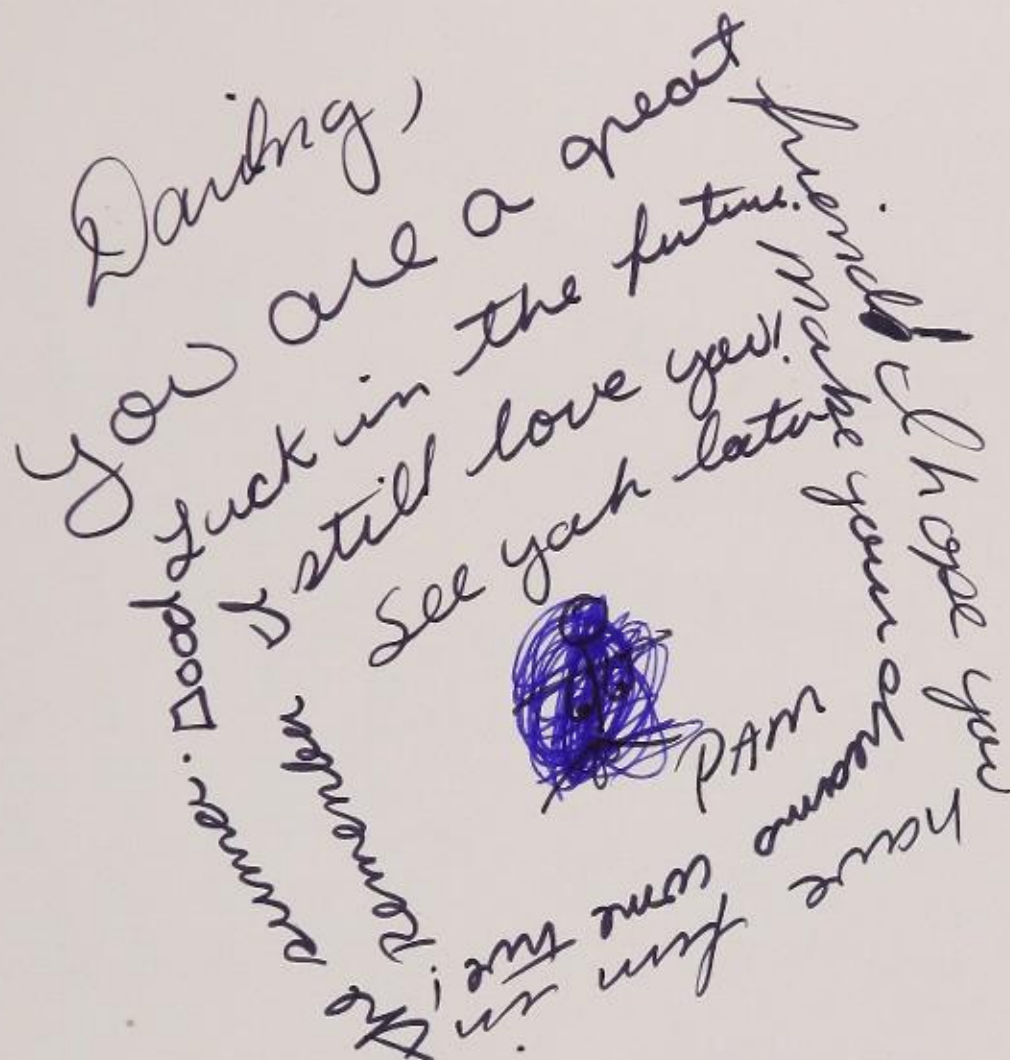 Darling,
You are a great
friend! I hope you
have fun in
the summer. Good
Luck in the future.
Make your dreams
come true!
Remember
I still love you!
See yah later
PAM